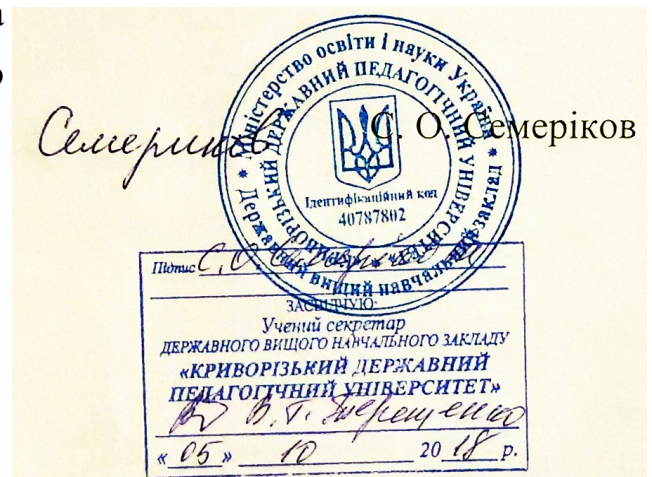 а
о
Семеріков С. О. Семеріков
Міністерство освіти і науки України
Державний вищий навчальний заклад
КРИВОРІЗЬКИЙ ДЕРЖАВНИЙ ПЕДАГОГІЧНИЙ УНІВЕРСИТЕТ
Ідентифікаційний код
40787802
Підпис С.О. Семерікова
ЗАСВІДЧУЮ:
Учений секретар
ДЕРЖАВНОГО ВИЩОГО НАВЧАЛЬНОГО ЗАКЛАДУ
«КРИВОРІЗЬКИЙ ДЕРЖАВНИЙ
ПЕДАГОГІЧНИЙ УНІВЕРСИТЕТ»
В. Г.
«05» 10 2018 р.